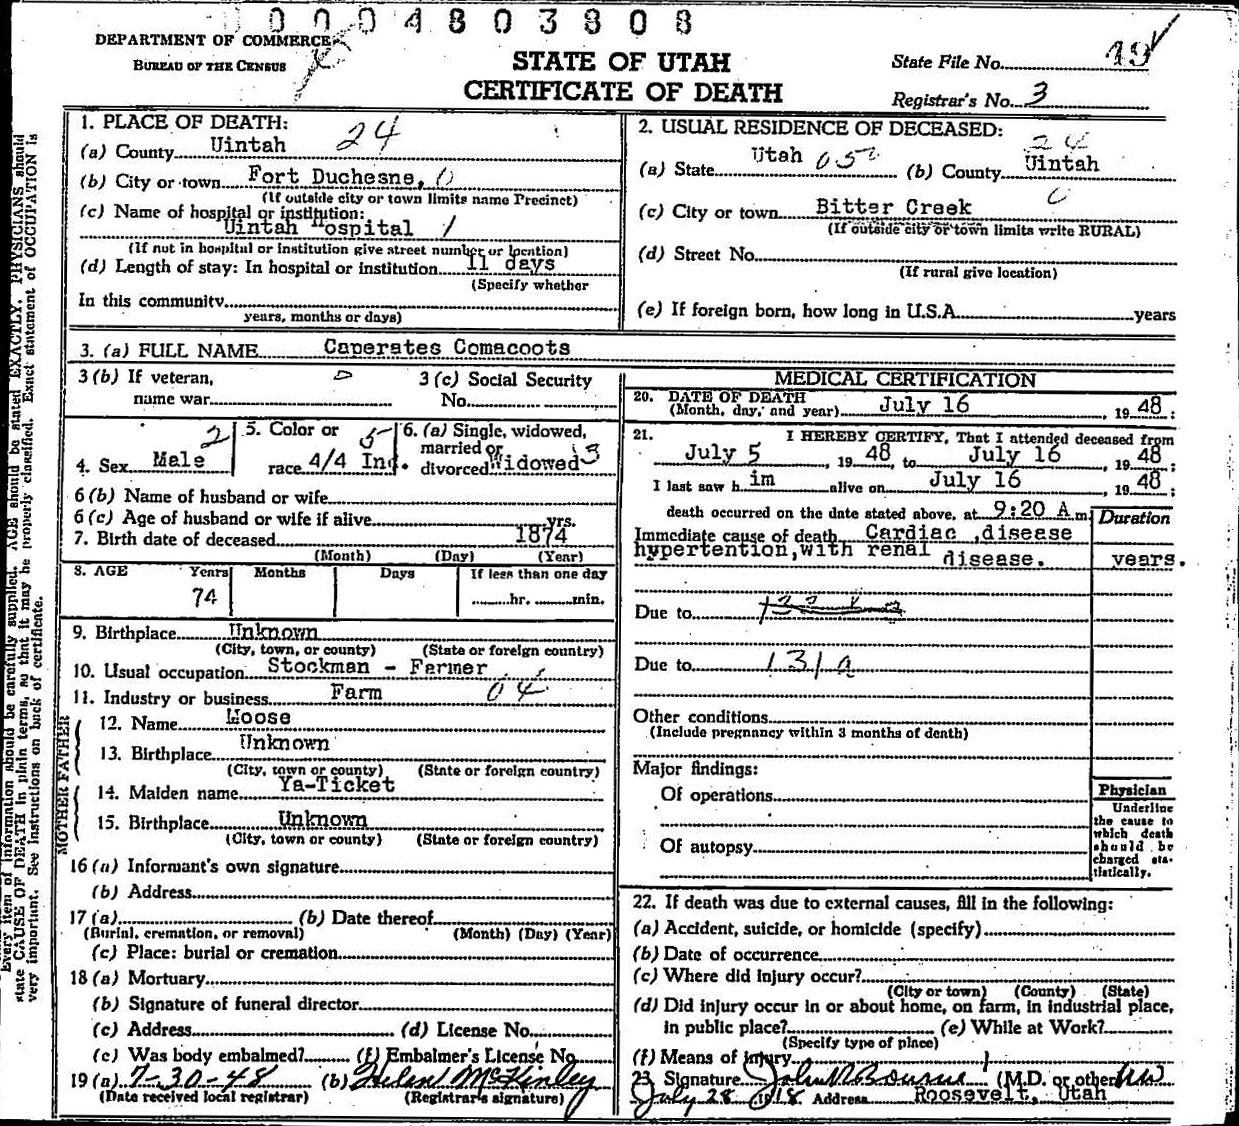 0 0 0 4 8 0 3 8 0 8
DEPARTMENT OF COMMERCE
BUREAU OF THE CENSUS
STATE OF UTAH
CERTIFICATE OF DEATH
State File No. 19
Registrar's No. 3
1. PLACE OF DEATH: 24
(a) County Uintah
(b) City or town Fort Duchesne, 0
(If outside city or town limits name Precinct)
(c) Name of hospital or institution:
Uintah Hospital 1
(If not in hospital or institution give street number or location)
(d) Length of stay: In hospital or institution 11 days
(Specify whether
In this community
years, months or days)
2. USUAL RESIDENCE OF DECEASED: 24
(a) State Utah 052 (b) County Uintah
(c) City or town Bitter Creek 0
(If outside city or town limits write RURAL)
(d) Street No.
(If rural give location)
(e) If foreign born, how long in U.S.A. years
3. (a) FULL NAME Caperates Comacoots
3 (b) If veteran, 3 (c) Social Security
name war No.
4. Sex Male 2
5. Color or 5
race 4/4 Ind.
6. (a) Single, widowed,
married or
divorced Widowed 3
6 (b) Name of husband or wife
6 (c) Age of husband or wife if alive yrs.
7. Birth date of deceased 1874
(Month) (Day) (Year)
8. AGE Years Months Days If less than one day
74 hr. min.
9. Birthplace Unknown
(City, town, or county) (State or foreign country)
10. Usual occupation Stockman - Farmer
11. Industry or business Farm 04
FATHER
12. Name Moose
13. Birthplace Unknown
(City, town or county) (State or foreign country)
MOTHER
14. Maiden name Ya-Ticket
15. Birthplace Unknown
(City, town or county) (State or foreign country)
16 (a) Informant's own signature
(b) Address
17 (a) (b) Date thereof
(Burial, cremation, or removal) (Month) (Day) (Year)
(c) Place: burial or cremation
18 (a) Mortuary
(b) Signature of funeral director
(c) Address (d) License No.
(e) Was body embalmed? (f) Embalmer's License No
19 (a) 7-30-48 (b) Helen McKinley
(Date received local registrar) (Registrar's signature)
MEDICAL CERTIFICATION
20. DATE OF DEATH
(Month, day, and year) July 16, 1948;
21. I HEREBY CERTIFY, That I attended deceased from
July 5, 1948, to July 16, 1948;
I last saw him alive on July 16, 1948;
death occurred on the date stated above, at 9:20 A.m.
Duration
Immediate cause of death Cardiac ,disease
hypertention,with renal disease. years.
Due to
Due to 131a
Other conditions
(Include pregnancy within 3 months of death)
Major findings:
Of operations
Of autopsy
Physician
Underline
the cause to
which death
should be
charged sta-
tistically.
22. If death was due to external causes, fill in the following:
(a) Accident, suicide, or homicide (specify)
(b) Date of occurrence
(c) Where did injury occur?
(City or town) (County) (State)
(d) Did injury occur in or about home, on farm, in industrial place,
in public place? (e) While at Work?
(Specify type of place)
(f) Means of injury
23. Signature John R Bourne (M.D. or other
July 28 Address Roosevelt, Utah
Every item of information should be carefully supplied. AGE should be stated EXACTLY. PHYSICIANS should
state CAUSE OF DEATH in plain terms, so that it may be properly classified. Exact statement of OCCUPATION is
very important. See instructions on back of certificate.